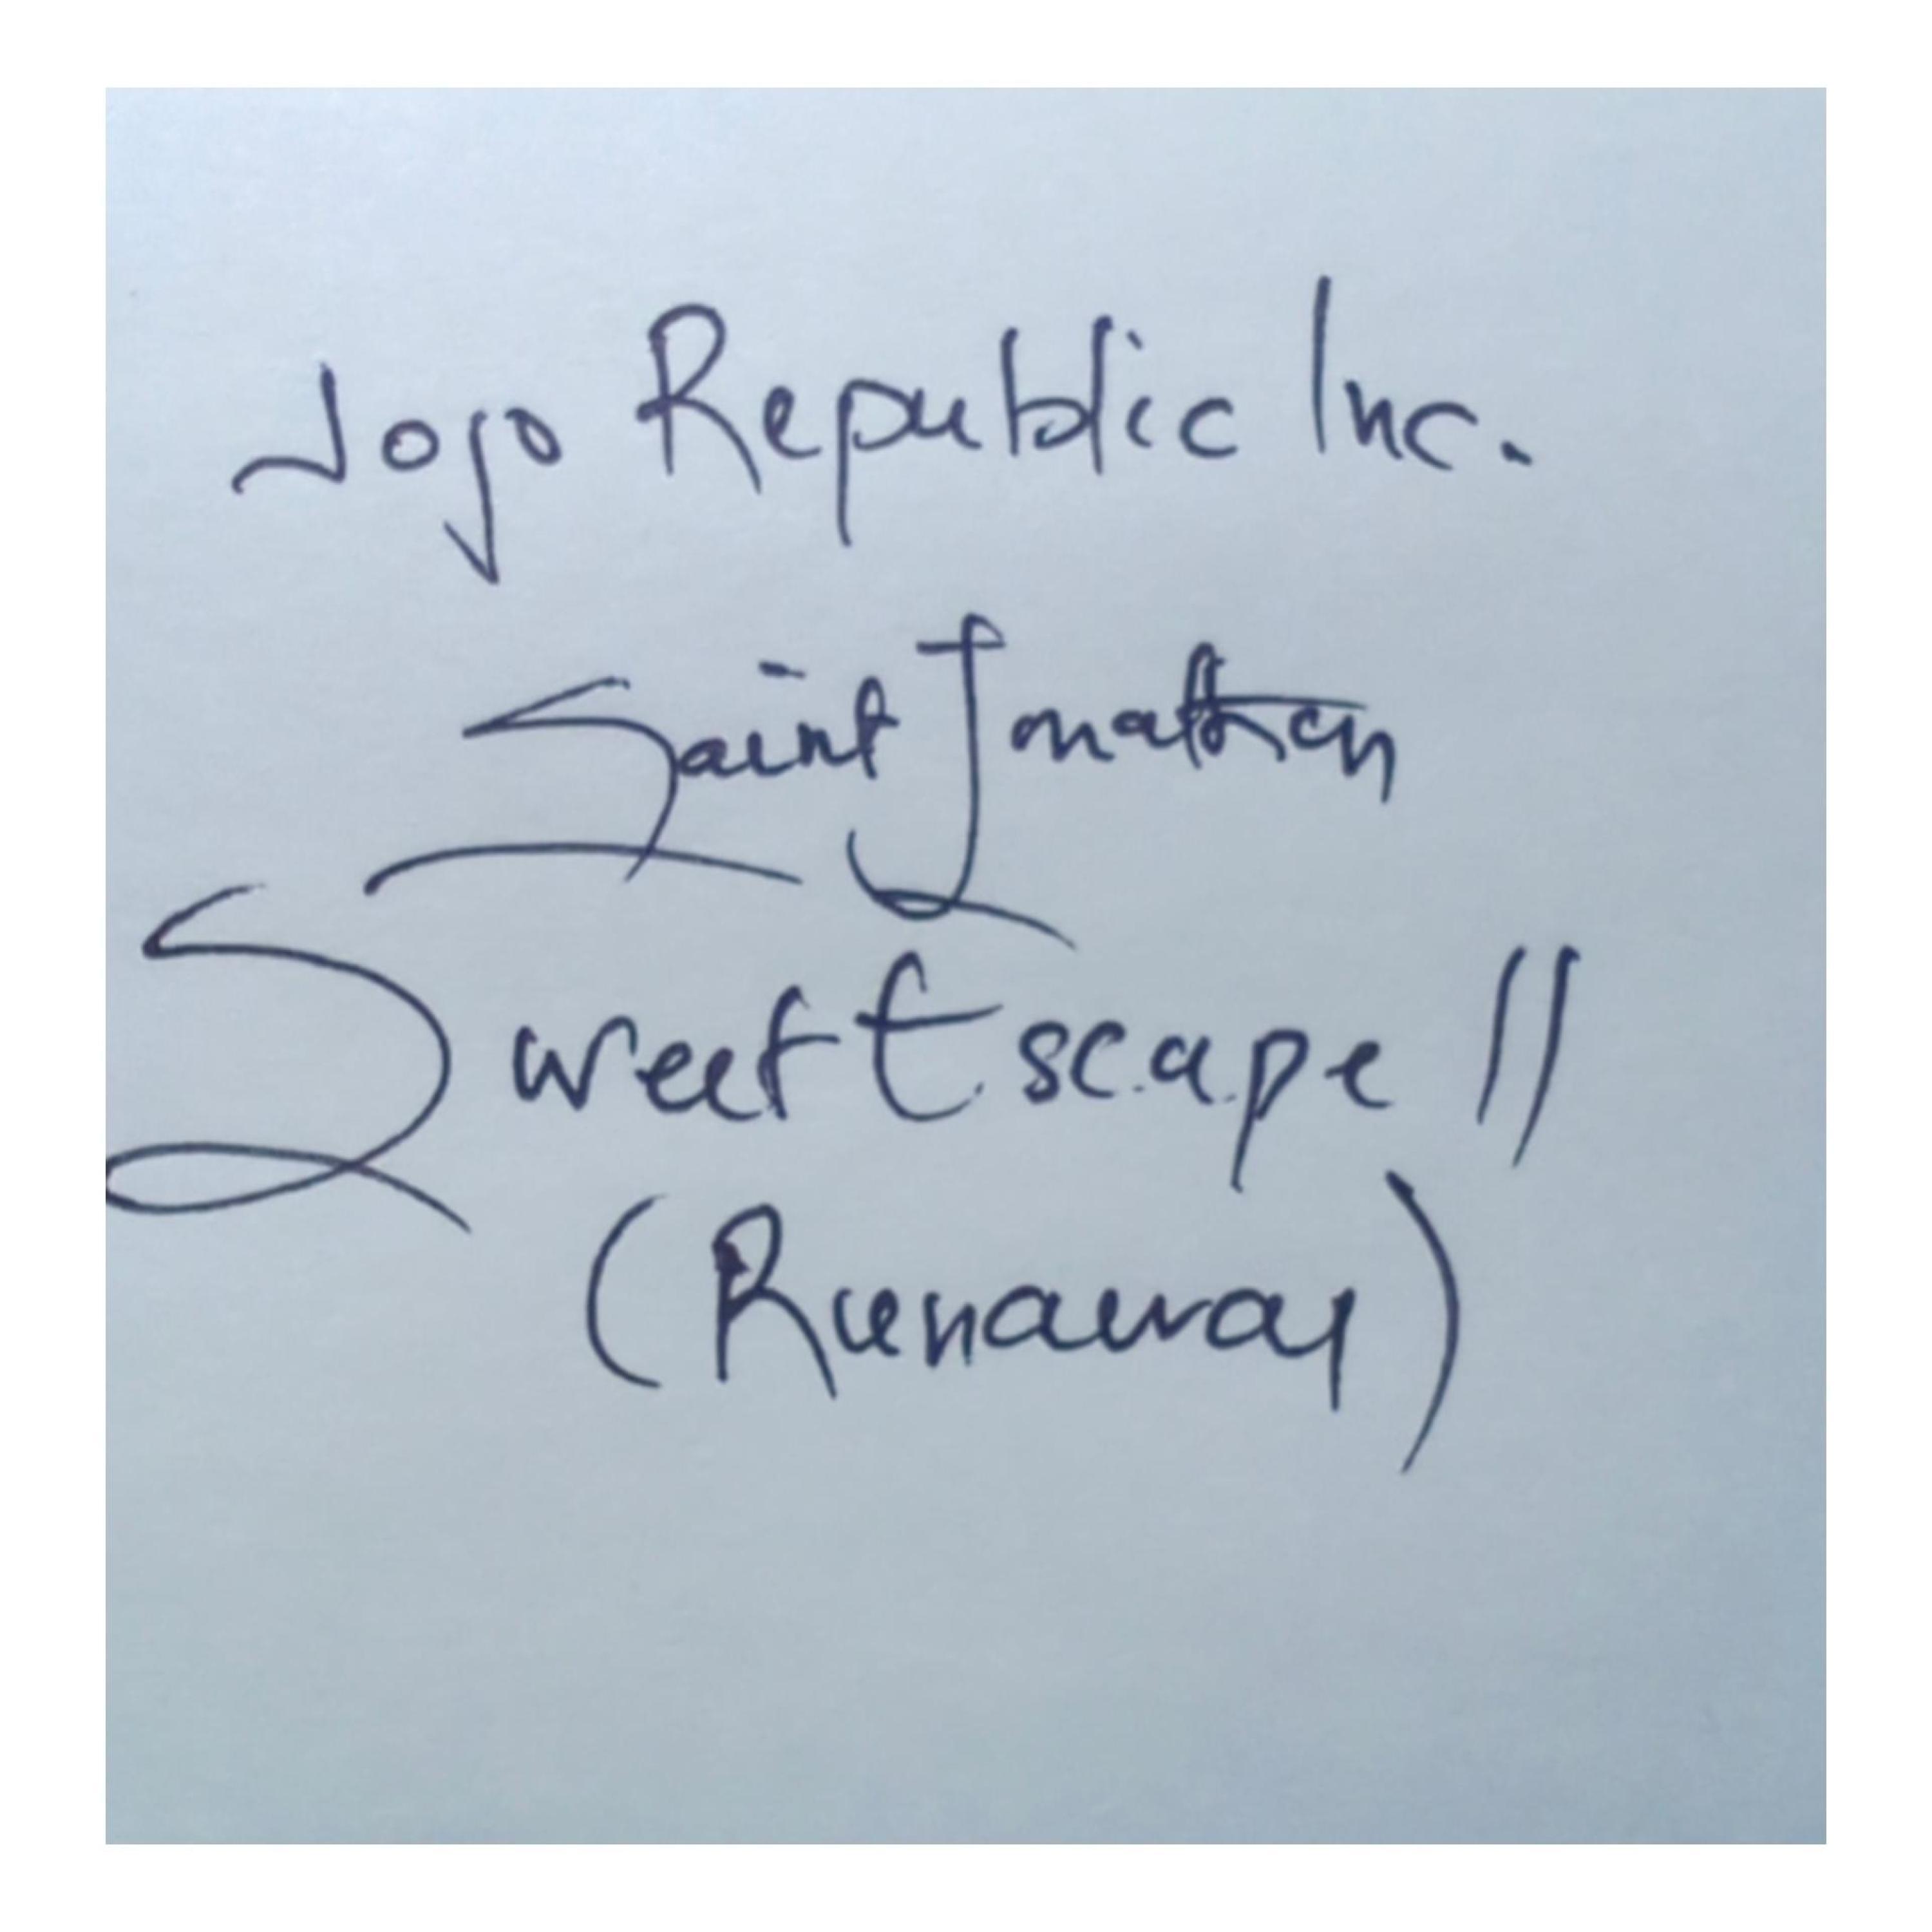 Jojo Republic Inc.
Saint Jonathan
Sweet Escape II
(Runaway)